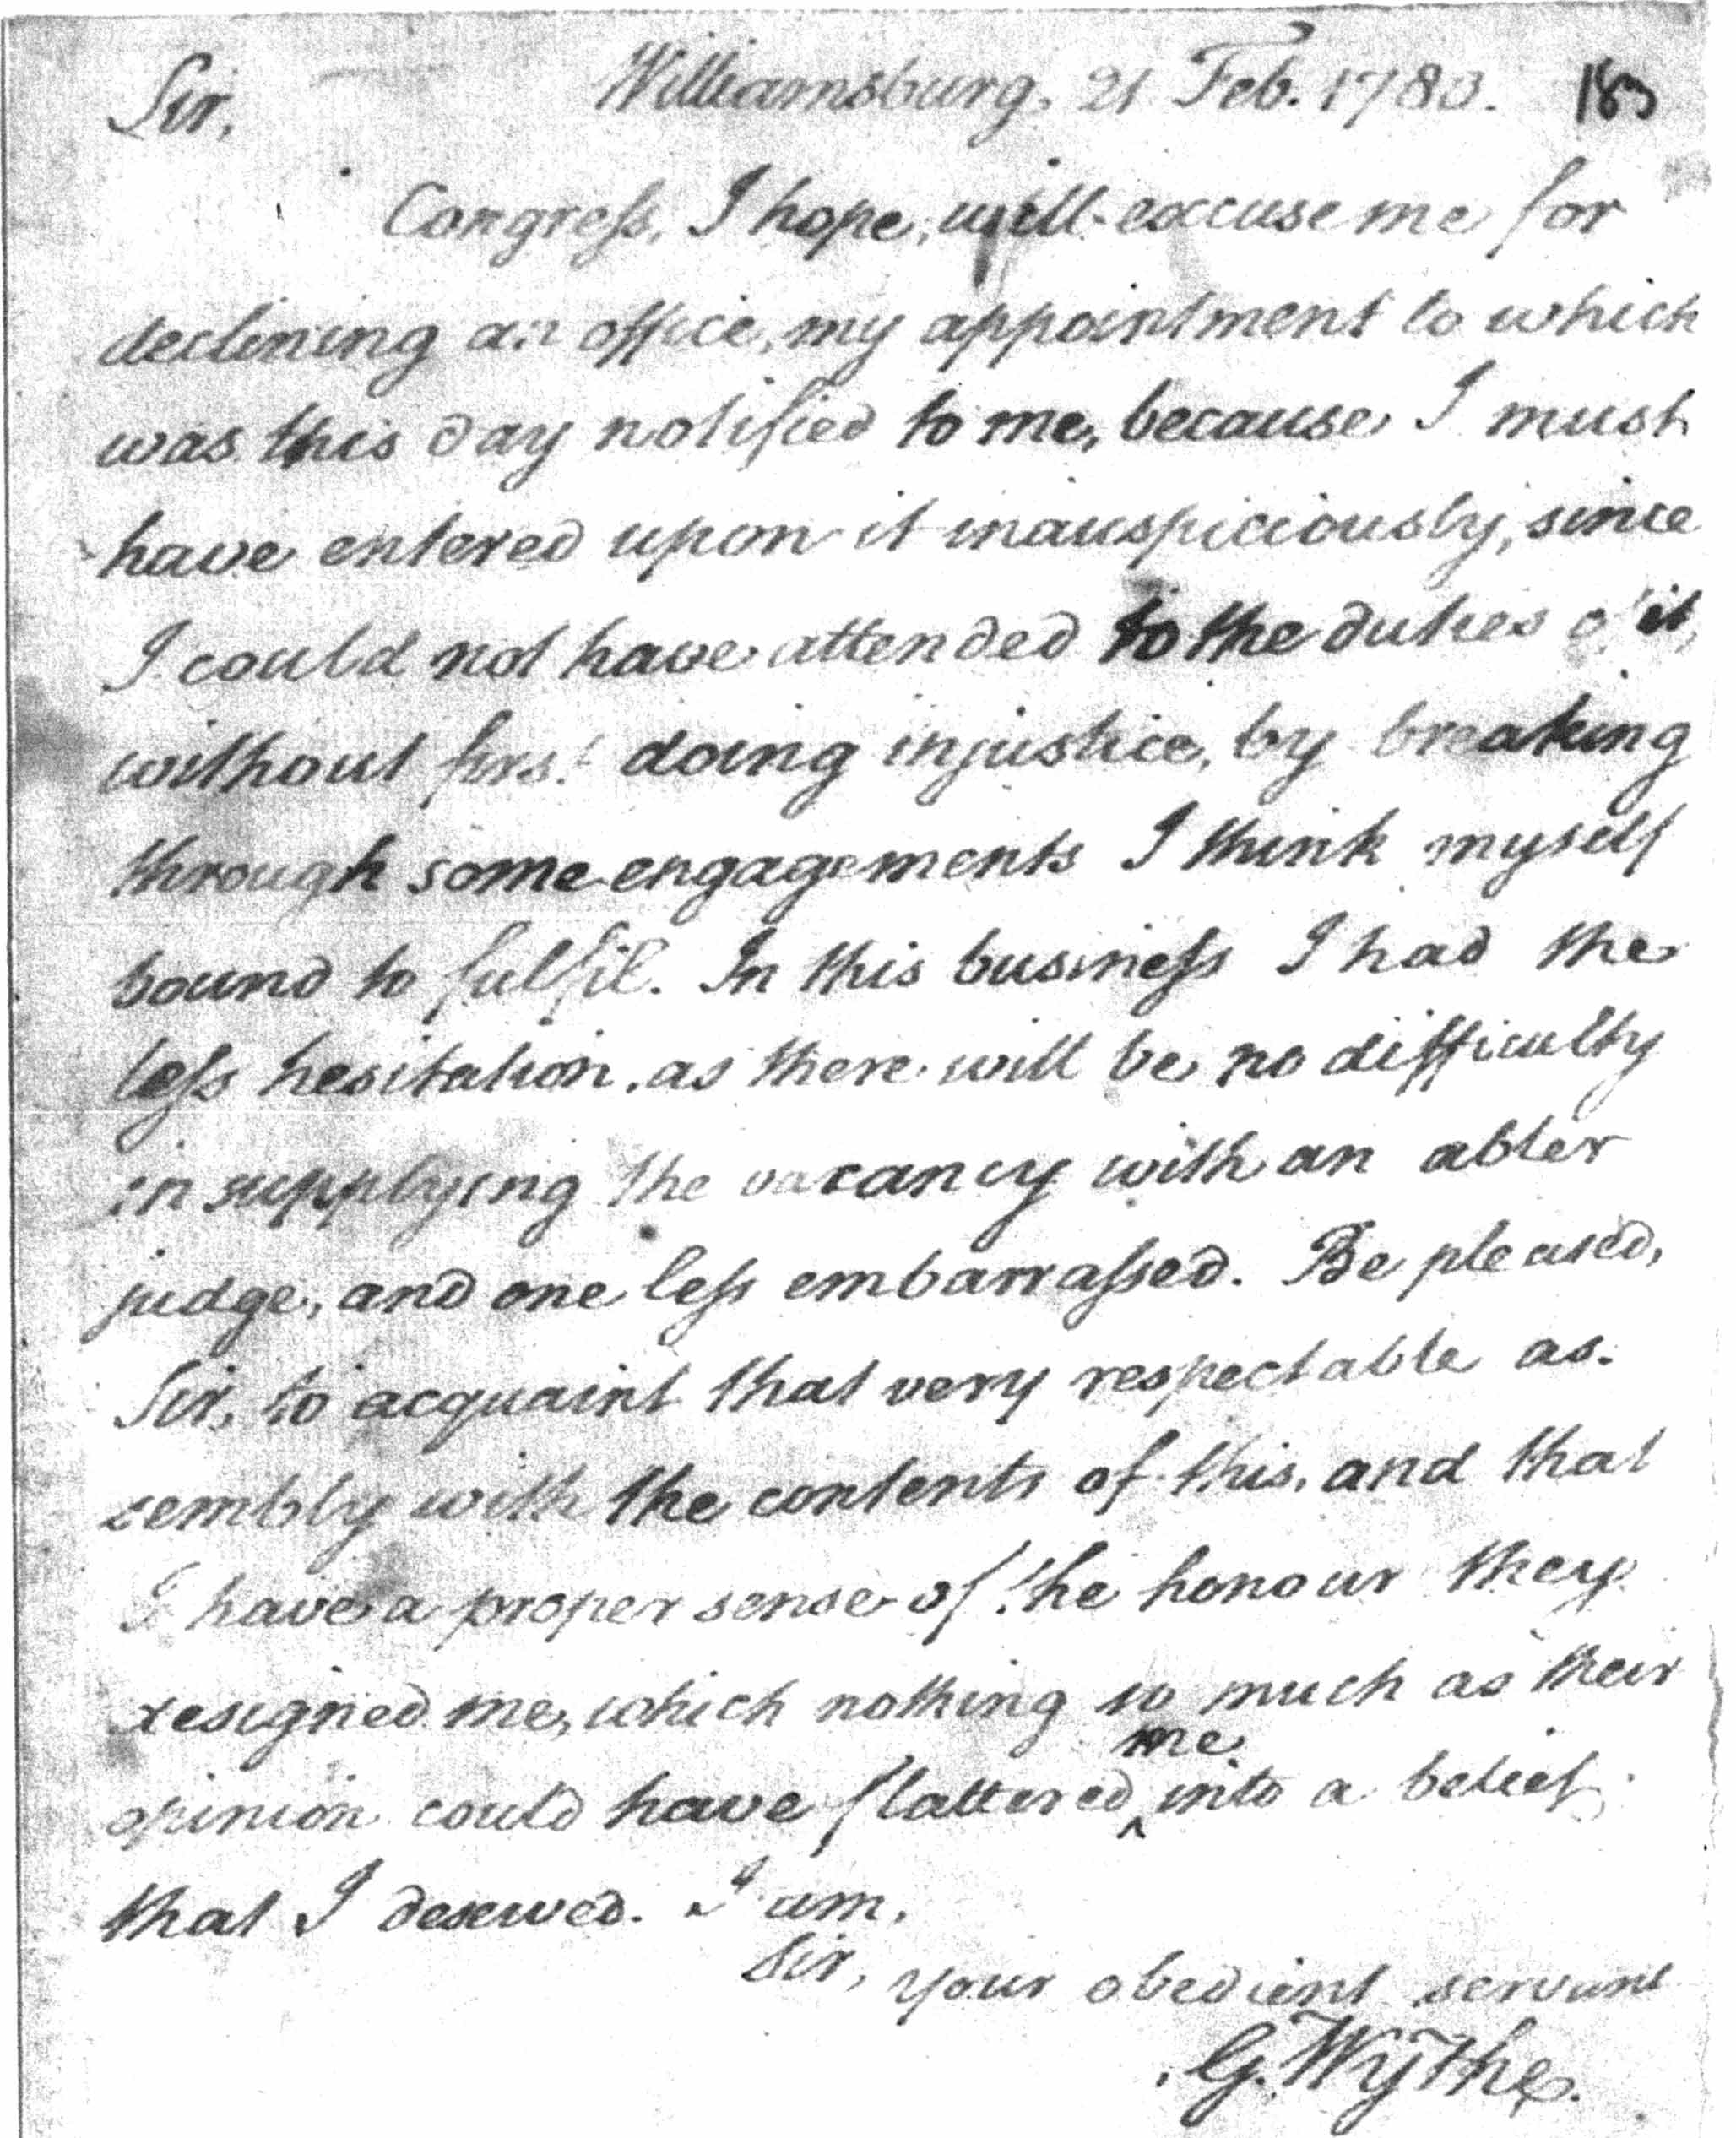 Sir, Williamsburg, 21 Feb. 1780. 183
Congress, I hope, will excuse me for
declining an office, my appointment to which
was this day notified to me, because I must
have entered upon it inauspiciously, since
I could not have attended to the duties of it,
without first doing injustice, by breaking
through some engagements I think myself
bound to fulfil. In this business I had the
less hesitation, as there will be no difficulty
in supplying the vacancy with an abler
judge, and one less embarrassed. Be pleased,
Sir, to acquaint that very respectable as-
sembly with the contents of this, and that
I have a proper sense of the honour they
designed me, which nothing so much as their
opinion could have flattered me into a belief
that I deserved. I am,
Sir, your obedient servant
G. Wythe.